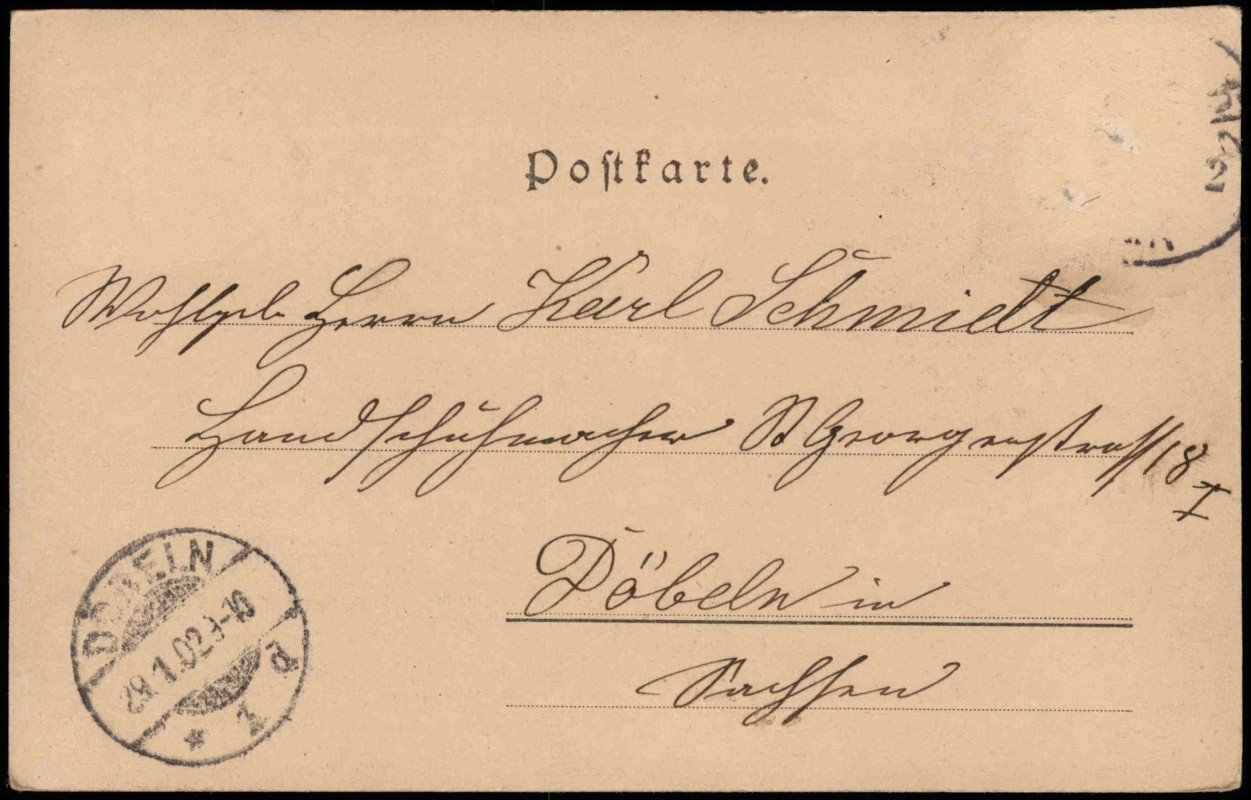 Postkarte.
Wohlgeb. Herrn Karl Schmidt
Handschuhmacher St. Georgenstrass 18
I
Döbeln in
Sachsen
DÖBELN
29.1.02 9-10
* 1